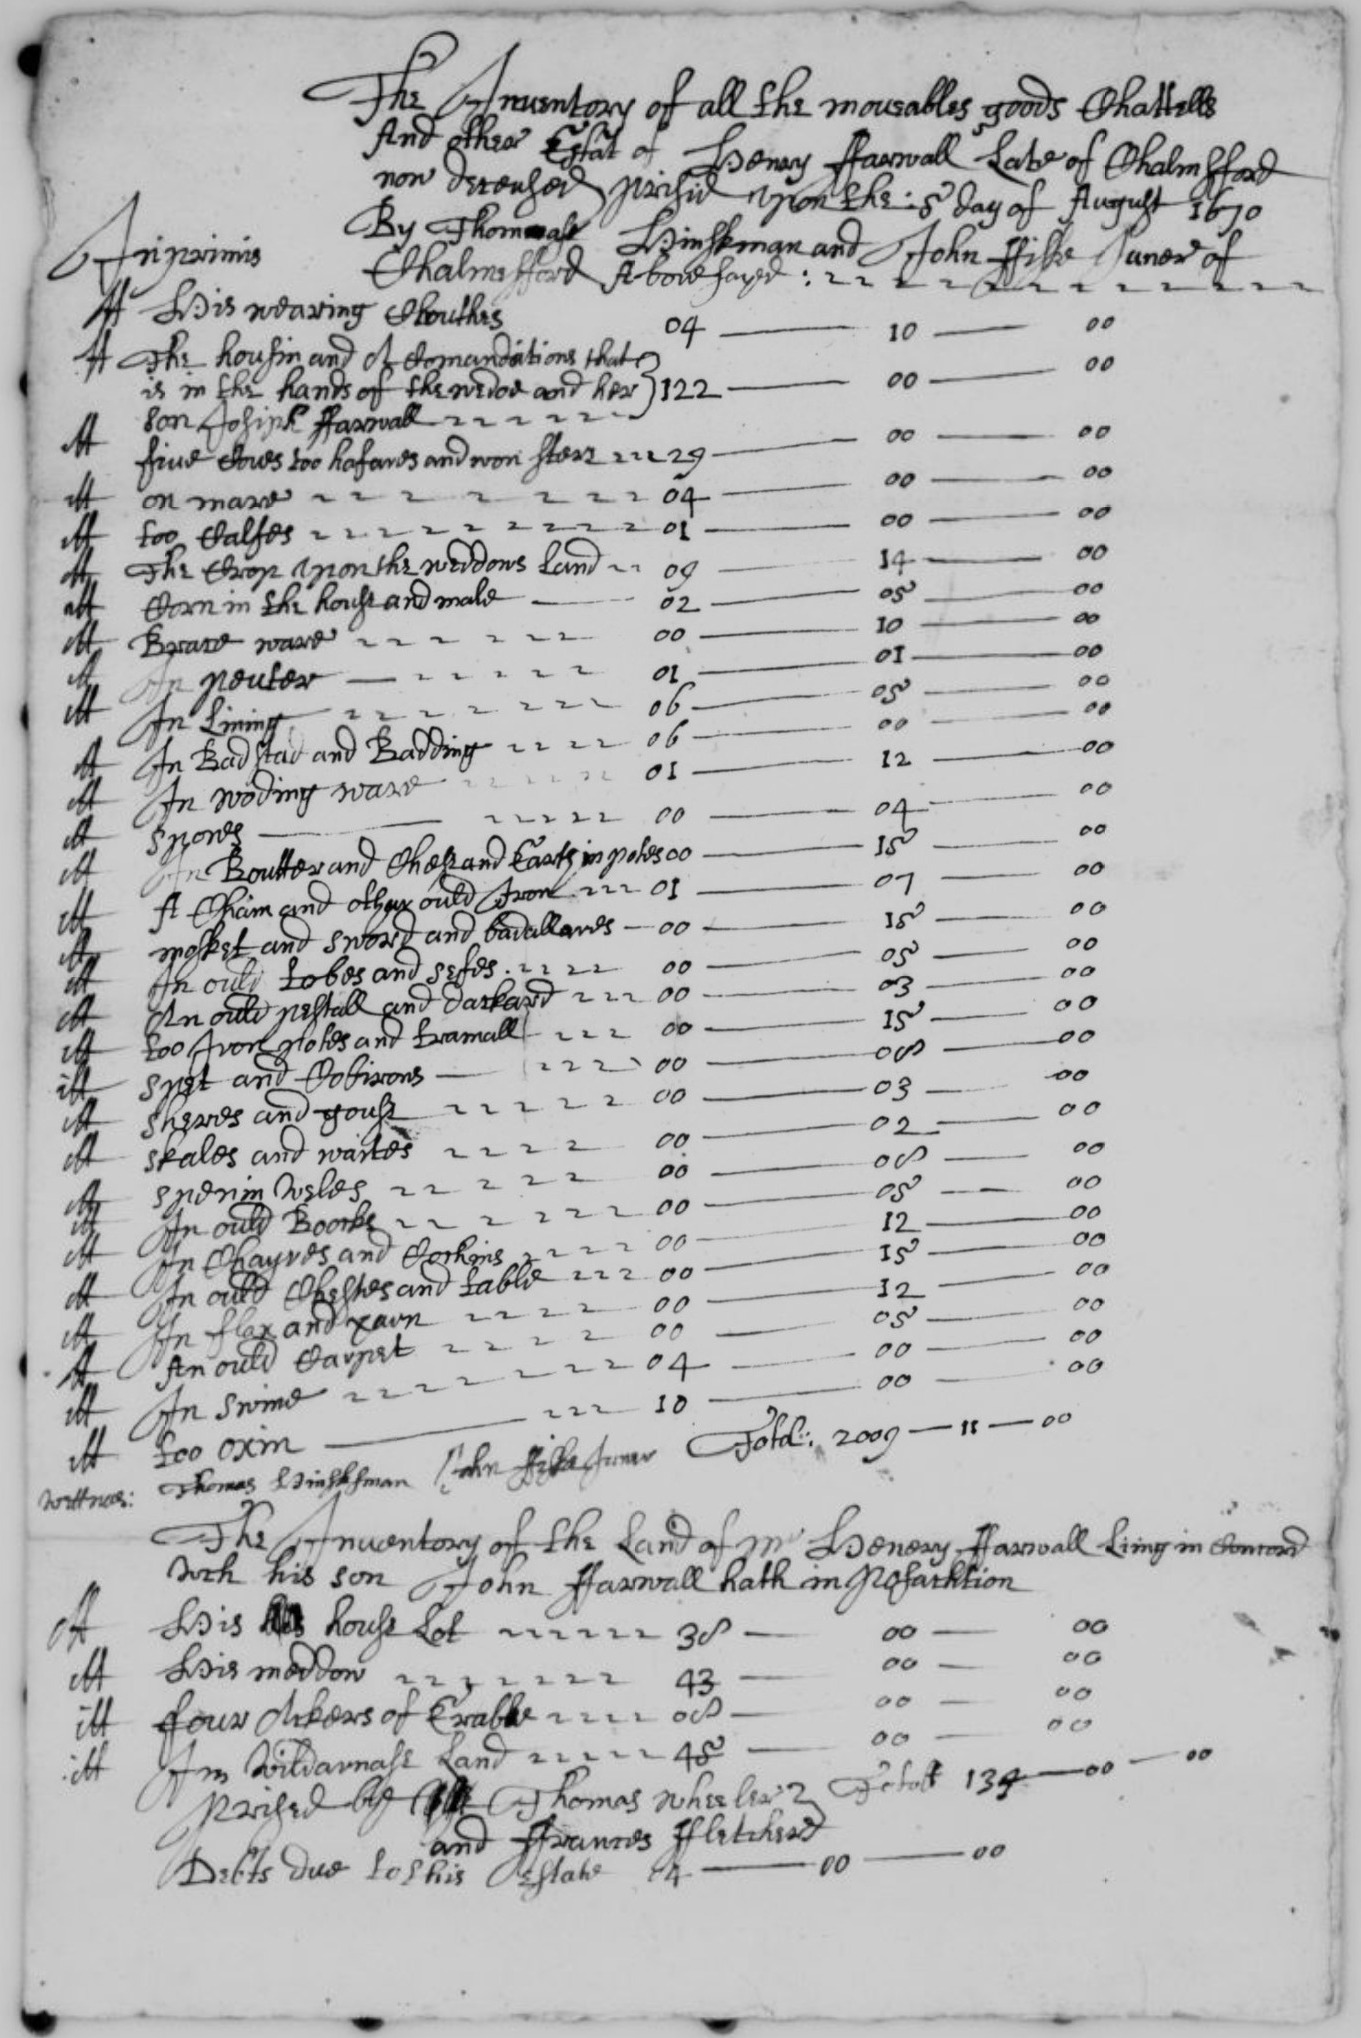 The Inventory of all the moueables goods Chattells
And other Estat of Henry ffarwall Late of Chalmsfford
now deceased prised upon the : 5 day of August 1670
By Thomas Hinskman and John ffiske Juner of
Inprimis Chalmsfford A bove sayed :
It His wearing Clouthes 04 — 10 — 00
It The housin and Acomandations that
is in the hands of the wedoe and her } 122 — 00 — 00
son Josiph ffarwall
It fiue Coues too hafares and won steer 29 — 00 — 00
it on mare 04 — 00 — 00
it too Calfes 01 — 00 — 00
it The Crop upon the weddows Land 09 — 14 — 00
it Corn in the house and male 02 — 05 — 00
it Brase ware 00 — 10 — 00
it In peuter 01 — 01 — 00
it In Lining 06 — 05 — 00
it In Badstad and Badding 06 — 00 — 00
it In woding ware 01 — 12 — 00
it spones 00 — 04 — 00
it In Boutter and Chese and Earth in potes 00 — 15 — 00
it A Chain and other ould Iron 01 — 07 — 00
it mosket and sword and badallares 00 — 15 — 00
it In ould tobes and sefes 00 — 05 — 00
it An ould pestall and 00 — 03 — 00
it too Iron potes and tramall 00 — 15 — 00
itt spet and Cobirons 00 — 08 — 00
it sheres and gouse 00 — 03 — 00
it skales and waites 00 — 02 — 00
it spenin weles 00 — 08 — 00
it In ould Boocks 00 — 05 — 00
it In Chayres and Coshins 00 — 12 — 00
it In ould Chestes and table 00 — 15 — 00
it In flax and yarn 00 — 12 — 00
It An ould Carpet 00 — 05 — 00
it In swine 04 — 00 — 00
it too oxin 10 — 00 — 00
wittnes: Thomas Hinskman John ffiske Juner Total: 2009 — 11 — 00
The Inventory of the Land of mr Henery ffarwall Liing in Concord
wch his son John ffarwall hath in
It His house Lot 38 — 00 — 00
it His meddow 43 — 00 — 00
itt four Akers of 08 — 00 — 00
itt In wildarnase Land 45 — 00 — 00
prised by Thomas wheeler } Totall 134 — 00 — 00
and ffrances ffletcher
Debts due to this estate 14 — 00 — 00